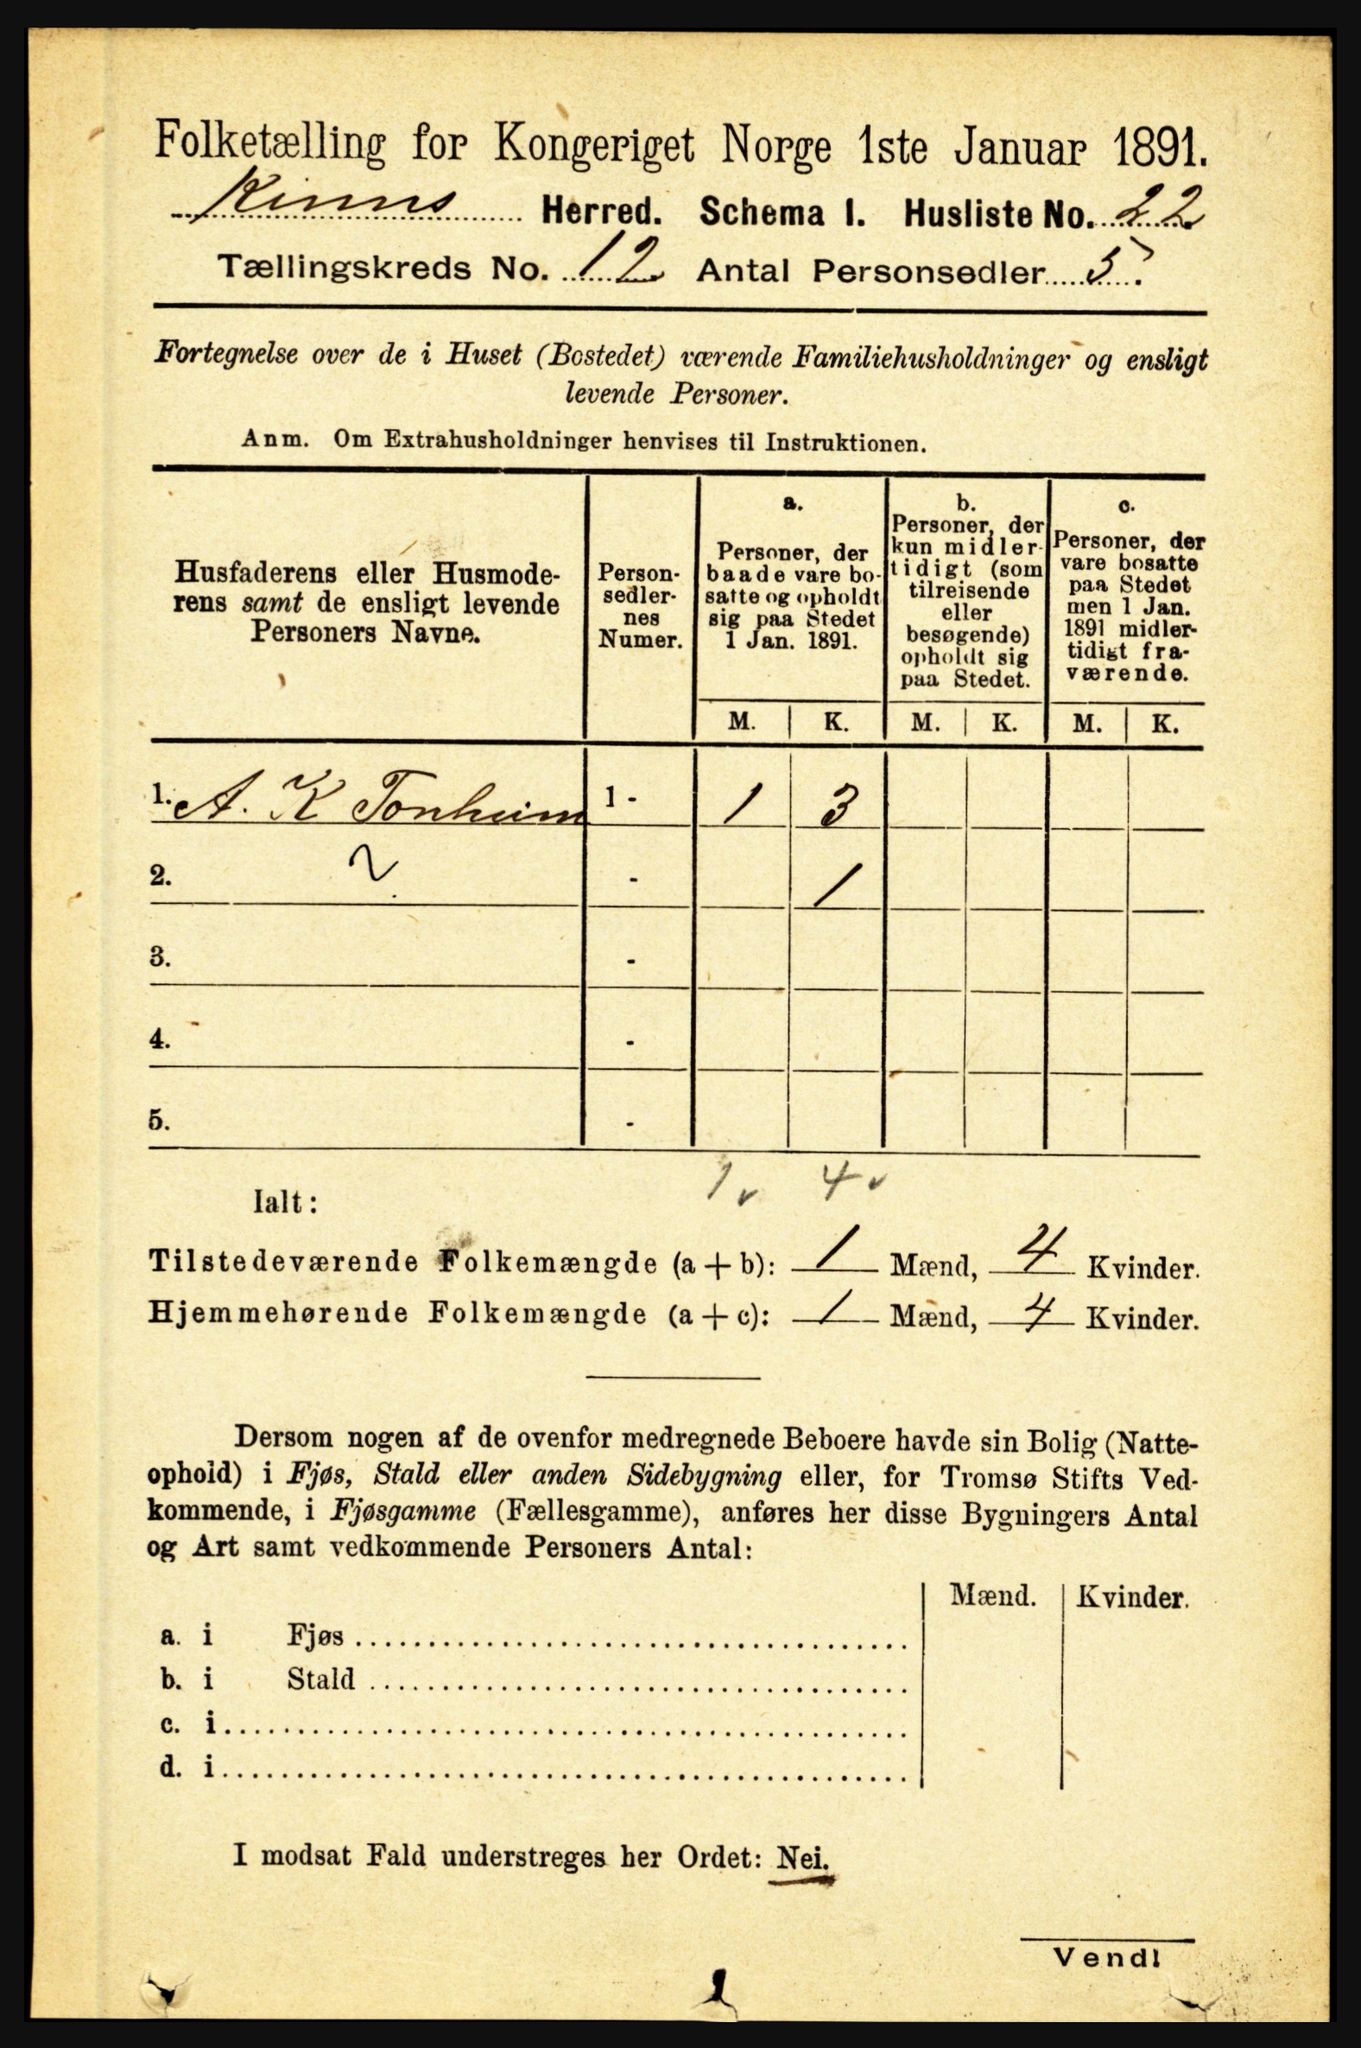 Folketælling for Kongeriget Norge 1ste Januar 1891.
Kinns Herred. Schema I. Husliste No. 22
Tællingskreds No. 12 Antal Personsedler 5.
Fortegnelse over de i Huset (Bostedet) værende Familiehusholdninger og ensligt
levende Personer.
Anm. Om Extrahusholdninger henvises til Instruktionen.
Husfaderens eller Husmode-
rens samt de ensligt levende
Personers Navne.
Person-
sedler-
nes
Numer.
a.
Personer, der
baade vare bo-
satte og opholdt
sig paa Stedet
1 Jan. 1891.
b.
Personer, der
kun midler-
tidigt (som
tilreisende
eller
besøgende)
opholdt sig
paa Stedet.
c.
Personer, der
vare bosatte
paa Stedet
men 1 Jan.
1891 midler-
tidigt fra-
værende.
M. K. M. K. M. K.
1. A. K Tonheim 1 - 1 3
2. - 1
3. -
4. -
5. -
1 4
Ialt:
Tilstedeværende Folkemængde (a + b): 1 Mænd, 4 Kvinder.
Hjemmehørende Folkemængde (a + c): 1 Mænd, 4 Kvinder.
Dersom nogen af de ovenfor medregnede Beboere havde sin Bolig (Natte-
ophold) i Fjøs, Stald eller anden Sidebygning eller, for Tromsø Stifts Ved-
kommende, i Fjøsgamme (Fællesgamme), anføres her disse Bygningers Antal
og Art samt vedkommende Personers Antal:
Mænd. Kvinder.
a. i Fjøs
b. i Stald
c. i
d. i
I modsat Fald understreges her Ordet: Nei.
Vend!